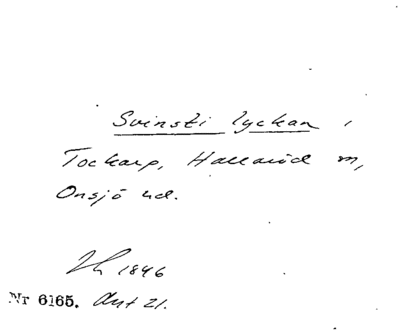 Svinsti lyckan,
Tockarp, Hallaröd m,
Onsjö hd.
1846
Nr 6165. Ant 21.